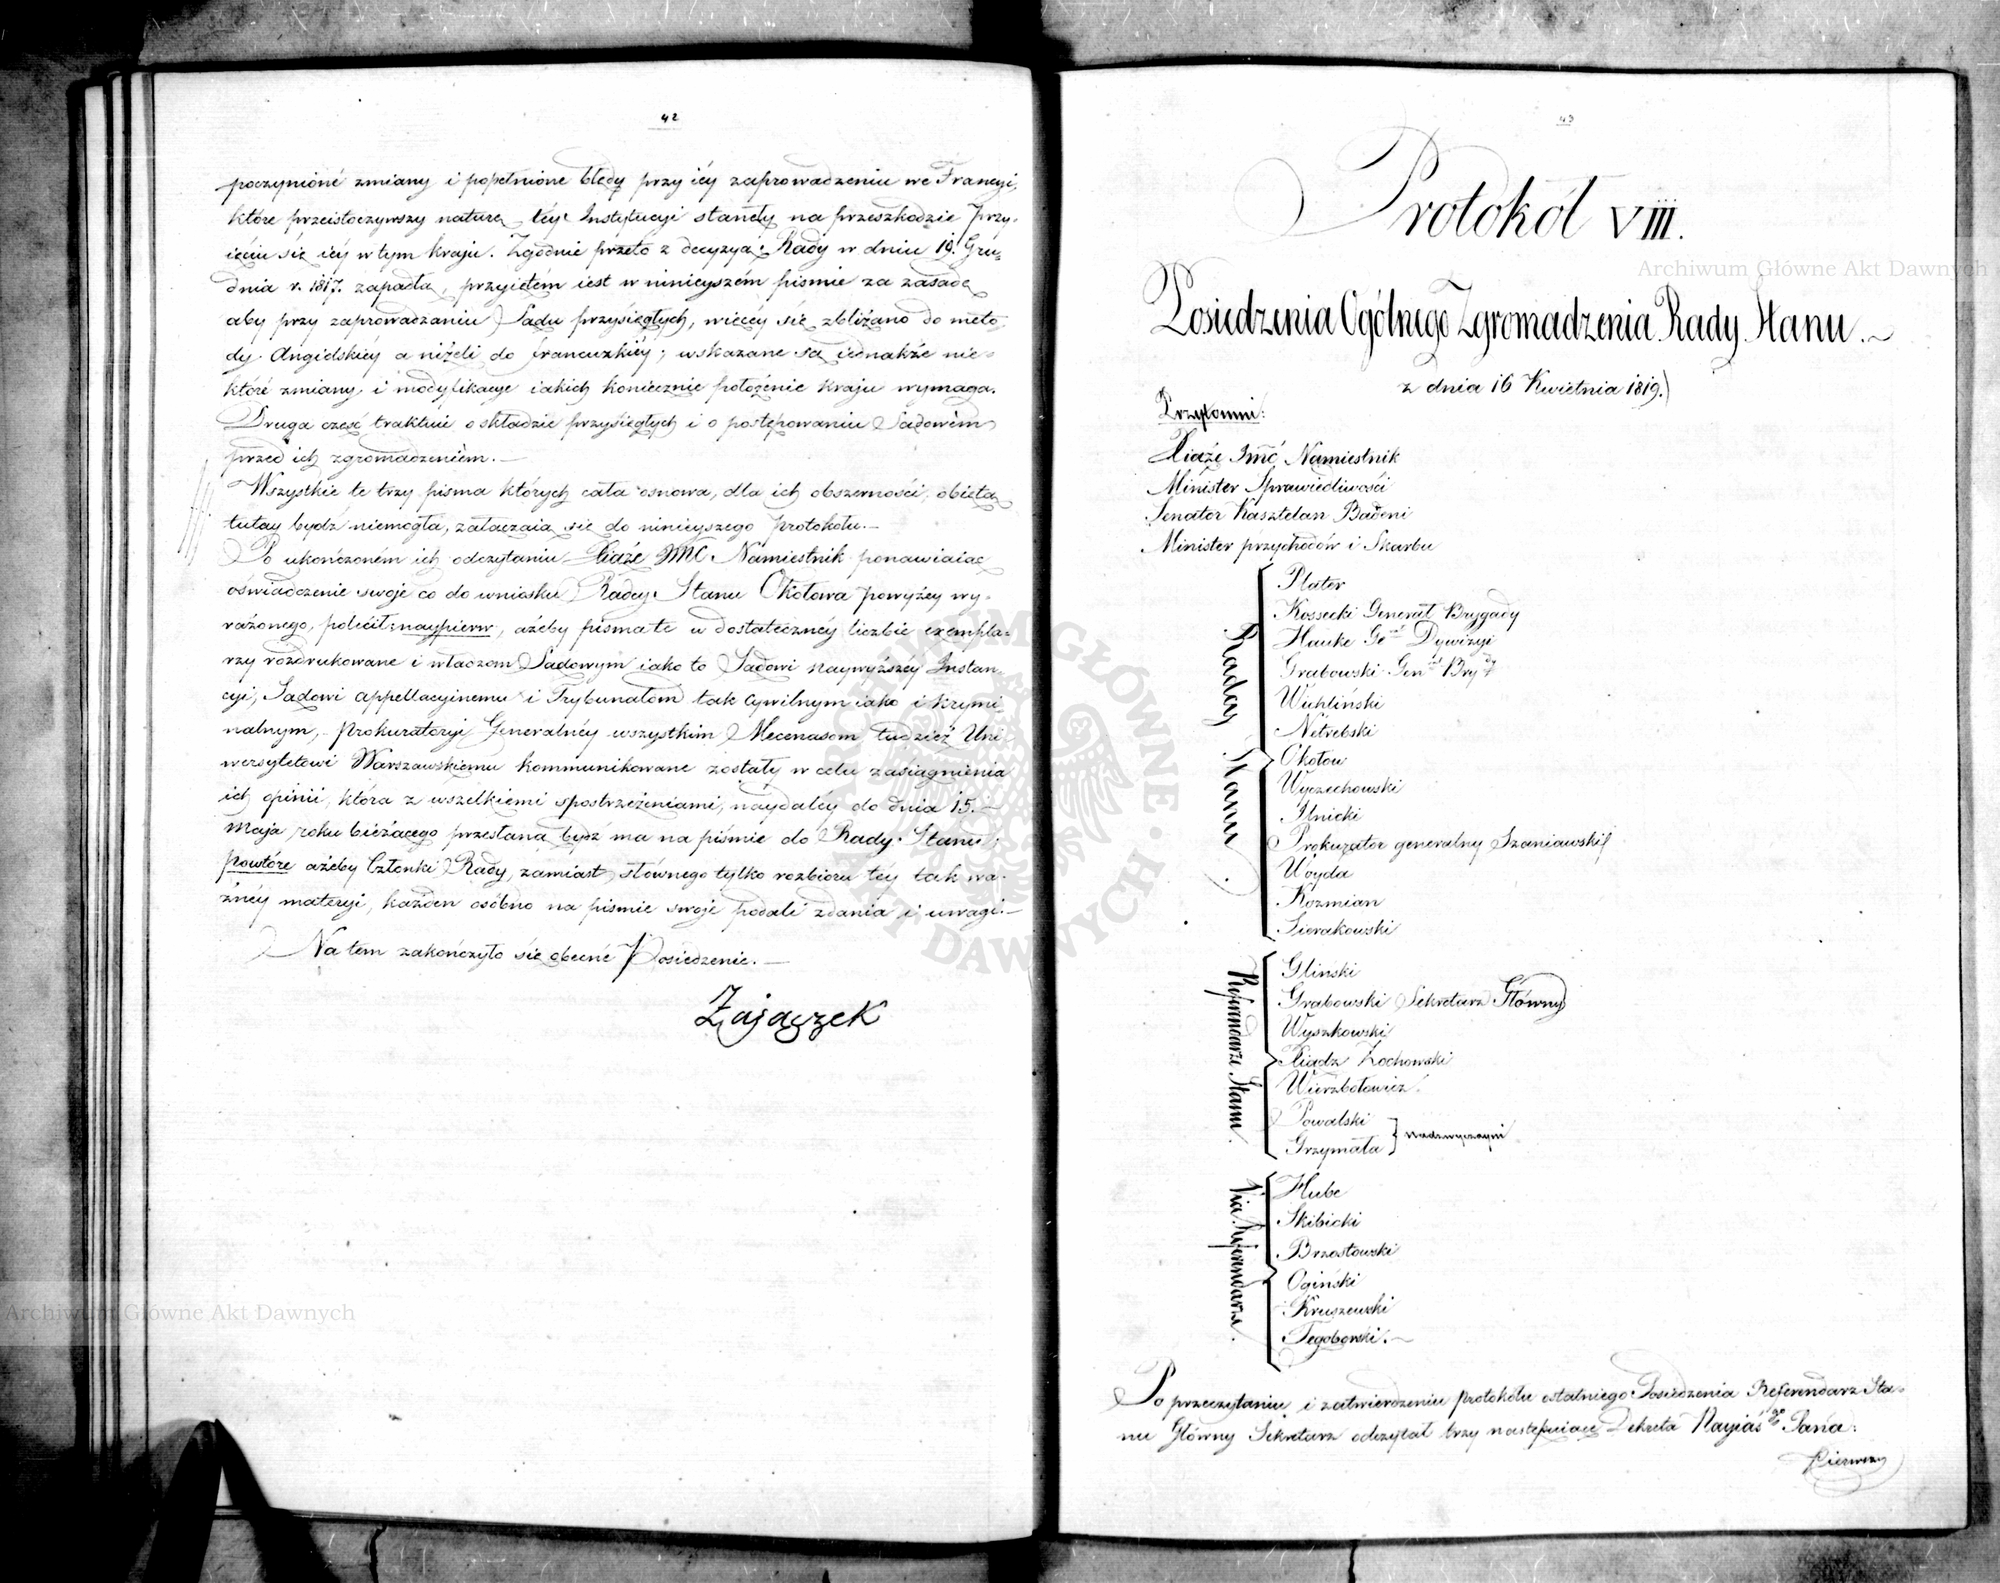 42
poczynioné zmiany i popełnione błędy przy iéy zaprowadzeniu we Francyi,
które przeistoczywszy naturę téy Instytucyi stanęły na przeszkodzie przy-
ięciu się iéy w tym kraju. Zgodnie przeto z decyzyą Rady w dniu 19. Gru-
dnia r. 1817. zapadłą, przyiętém iest w ninieyszém piśmie za zasadę
aby przy zaprowadzaniu Sądu przysięgłych, więcéy się zbliżano do meto-
dy Angielskiéy a niżeli do francuzkiéy; wskazane są iednakże nie-
któré zmiany i modyfikacye iakich koniecznie położenie kraju wymaga.
Druga część traktuié o składzie przysięgłych i o postępowaniu Sądowém
przed ich zgromadzeniem. —
Wszystkie te trzy pisma których cała osnowa, dla ich obszerności, obiętą
tutay bydź niemogła, załączaią się do ninieyszego protokołu. —
Po ukończoném ich odczytaniu Xiąże JMC Namiestnik ponawiaiąc
oświadczenie swoje co do wniosku Radcy Stanu Okołowa powyżéy wy-
rażonego, polecił: naypierw, ażeby pisma te w dostatecznéy liczbie exempla-
rzy rozdrukowane i władzom Sądowym iako to Sądowi naywyższéy Instan-
cyi, Sądowi appellacyinemu i Trybunałom tak cywilnym iako i krymi-
nalnym, Prokuratoryi Generalnéy wszystkim Mecenasom tudzież Uni-
wersytetowi Warszawskiemu kommunikowane zostały w celu zasiągnienia
ich opinii, która z wszelkiemi spostrzeżeniami, naydaléy do dnia 15. —
Maja roku bieżącego przesłaną bydź ma na piśmie do Rady Stanu;
powtóre ażeby Członki Rady, zamiast słównego tylko rozbioru téy tak wa-
żnéy materyi, każden osóbno na piśmie swoje podali zdania i uwagi. —
Na tem zakończyło się obecné Posiedzenie. —
Zajączek
43
Protokół VIII.
Posiedzenia Ogólnego Zgromadzenia Rady Stanu. ~
z dnia 16 Kwietnia 1819.
Przytomni:
Xiąże Jmć Namiestnik
Minister Sprawiedliwości
Senator Kasztelan Badeni
Minister przychodów i Skarbu
Radcy Stanu.
Plater
Kossecki Generał Brygady
Hauke Ge^nł Dywizyi
Grabowski Gen^ł Bry^dy
Wichliński
Netrebski
Okołow
Wyczechowski
Ilnicki
Prokurator generalny Szaniawski
Woyda
Kozmian
Sierakowski
Referendarze Stanu.
Gliński
Grabowski Sekretarz Główny
Wyszkowski
Xiądz Zochowski
Wierzbołowicz
Powalski
Grzymała } nadzwyczayni
Vice Referendarze.
Hube
Skibicki
Brzostowski
Ogiński
Kruszewski
Tęgoborski. ~
Po przeczytaniu i zatwierdzeniu protokółu ostatniego Posiedzenia Referendarz Sta-
nu Główny Sekretarz odczytał trzy następuiące Dekreta Nayjaś^go Pana:
Pierwszy
Archiwum Główne Akt Dawnych
Archiwum Główne Akt Dawnych
ARCHIWUM GŁÓWNE AKT DAWNYCH